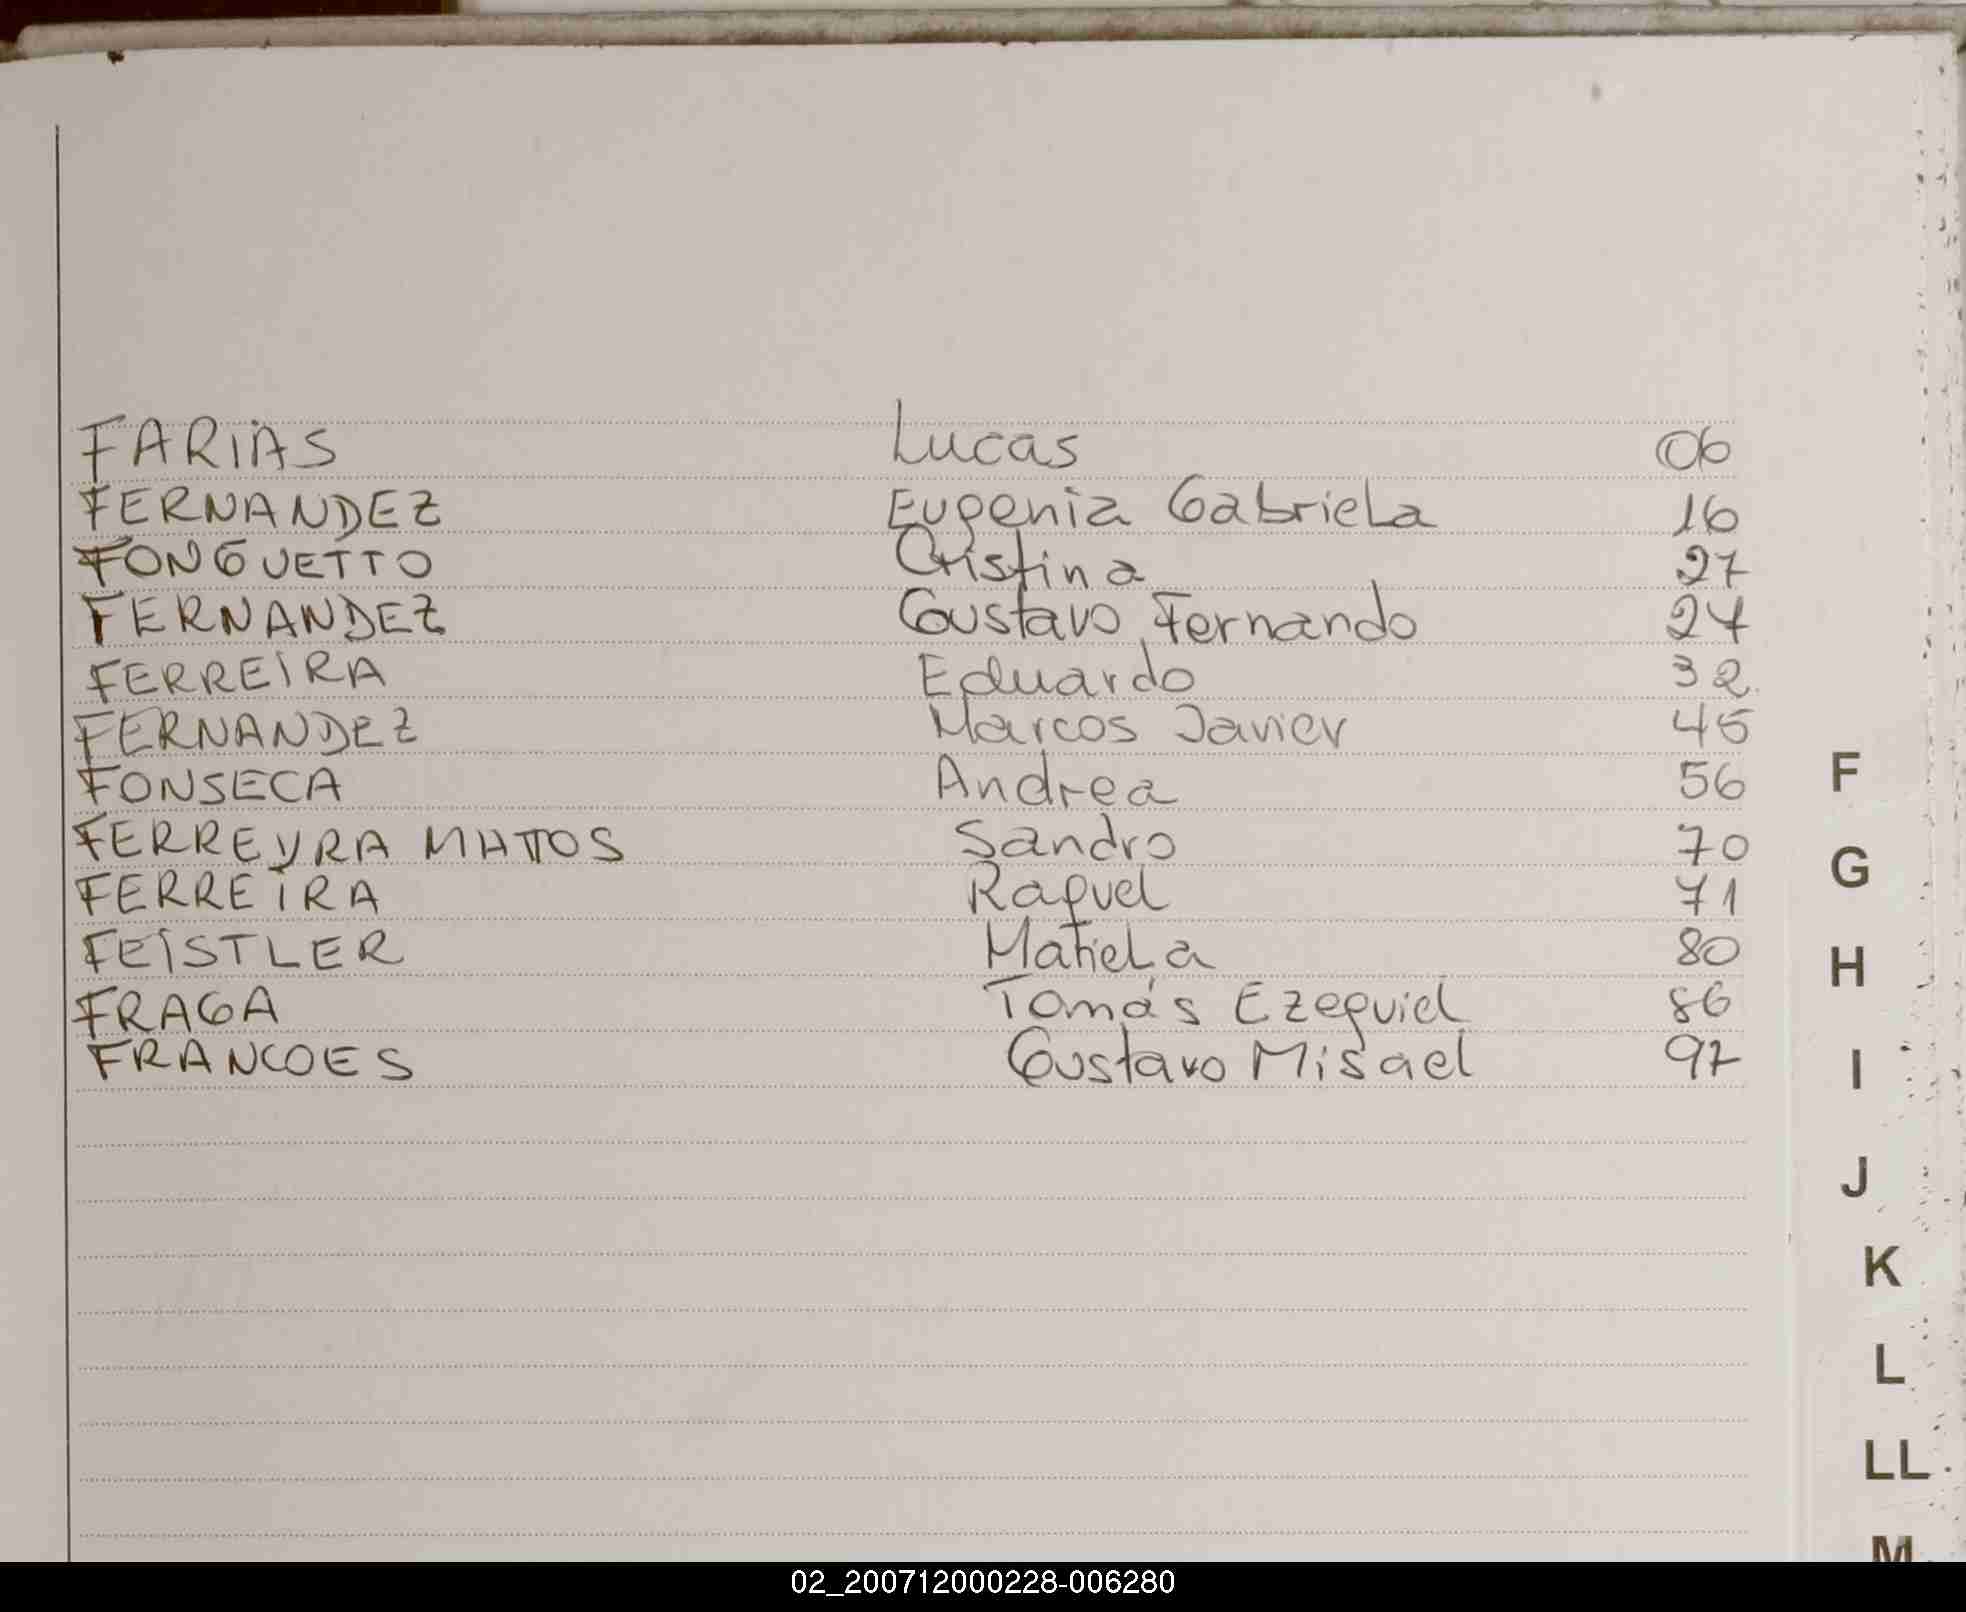 FARIAS Lucas 06
FERNANDEZ Eugenia Gabriela 16
FONGUETTO Cristina 27
FERNANDEZ Gustavo Fernando 24
FERREIRA Eduardo 32
FERNANDEZ Marcos Javier 45
FONSECA Andrea 56
FERREYRA MATTOS Sandro 70
FERREIRA Raquel 71
FEISTLER Mariela 80
FRAGA Tomás Ezequiel 86
FRANCOES Gustavo Misael 97
F
G
H
I
J
K
L
LL
M
02_200712000228-006280